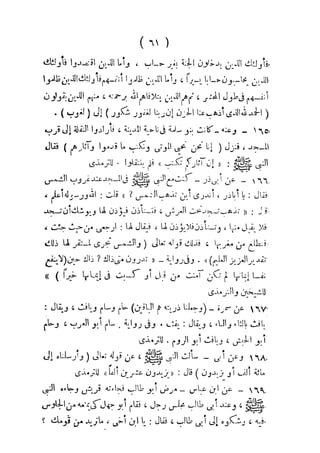 ( ٦١ )
فأولئك الذين يدخلون الجنة بغير حساب ، وأما الذين اقتصدوا فأولئك
الذين يحاسبون حسابا يسيراً ، وأما الذين ظلموا أنفسهم فأولئك الذين ظلموا
أنفسهم فى طول المحشر ، ثم هم الذين يتلافاهم الله برحمته ، منهم الذين يقولون
( الحمد لله الذى أذهب عنا الحزن إن ربنا لغفور شكور ) إلى ( لغوب ) .
١٦٥ - وعنه - كانت بنو سلمة فى ناحية المدينة ، فأرادوا النقلة إلى قرب
المسجد ، فنزل ( إنا نحن نحيى الموتى ونكتب ما قدموا وآثارهم ) فقال
النبى ﷺ : « إن آثاركم تكتب » فلم ينتقلوا - للترمذى
١٦٦ - عن أبى ذر - كنت مع النبى ﷺ فى المسجد عند غروب الشمس
فقال : يا أباذر ، أتدرى أين تذهب الشمس ؟ » قلت : الله ورسوله أعلم ،
قال : « تذهب تسجد تحت العرش ، فتستأذن فيؤذن لها ويوشك أن تسجد
فلا يقبل منها ، وتستأذن فلا يؤذن لها ، فيقال لها : ارجعى من حيث جئت ،
فتطلع من مغربها ، فذلك قوله تعالى ( والشمس تجرى لمستقر لها ذلك
تقدير العزيز العليم ) » . وفى رواية - « تدرون متى ذاك ؟ ذاك حين ( لا ينفع
نفسا إيمانها لم تكن آمنت من قبل أو كسبت فى إيمانها خيراً ) »
للشيخين والترمذى
١٦٧ عن سمرة - ( وجعلنا ذريته هم الباقين ) حام وسام ويافث ، ويقال :
يافث بالثاء والتاء ، ويقال : يفث . وفى رواية . سام أبو العرب ، وحام
أبو الحبش ، ويافث أبو الروم . للترمذى
١٦٨ وعن أبى - سألت النبى ﷺ ، عن قوله تعالى ( وأرسلناه إلى
مائة ألف أو يزيدون ) قال : « يزيدون عشرين ألفاً » للترمذى
١٦٩ - عن ابن عباس - مرض أبو طالب فجاءته قريش وجاءه النبى
ﷺ ، وعند أبى طالب مجلس رجل ، فقام أبو جهل كى يمنعه من الجلوس
فيه ، وشكوه إلى أبى طالب ، فقال : يا ابن أخى ، ما تريد من قومك ؟